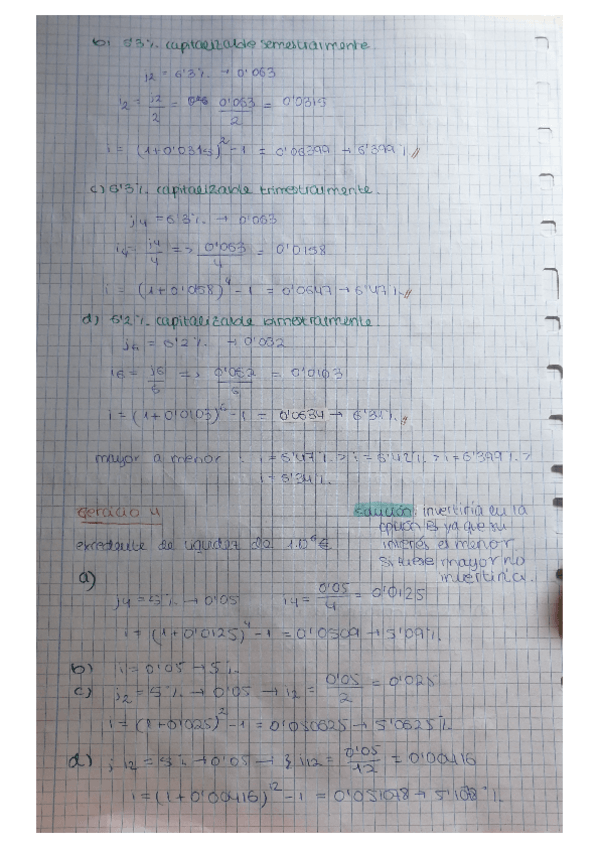 b) 6'3% capitalizable semestralmente.
j2 = 6'3% → 0'063
i2 = j2/2 = 0'063/2 = 0'0315
i = (1+0'0315)^2 - 1 = 0'06399 → 6'399% //
c) 6'3% capitalizable trimestralmente.
j4 = 6'3% → 0'063
i4 = j4/4 => 0'063/4 = 0'0158
i = (1+0'058)^4 - 1 = 0'0647 → 6'47% //
d) 6'2% capitalizable bimestralmente.
= 6'2% → 0'032
i6 = j6/6 => 0'062/6 = 0'0103
i = (1+0'0103)^6 - 1 = 0'0634 → 6'34% //
mayor a menor : i = 6'47% > i = 6'42% > i = 6'399% >
i = 6'34%
Ejercicio 4
Solución: invertiría en la
opción B ya que su
excedente de liquidez de 1.0^6€
interés es menor.
Si fuese mayor no
invertiría.
a)
j4 = 5% → 0'05 i4 = 0'05/4 = 0'0125
i = (1+0'0125)^4 - 1 = 0'0509 → 5'09%
b) i = 0'05 → 5%
c) j2 = 5% → 0'05 → i2 = 0'05/2 = 0'025
i = (1+0'025)^2 - 1 = 0'050625 → 5'0625%
d) j12 = 5% → 0'05 → i12 = 0'05/12 = 0'00416
i = (1+0'00416)^12 - 1 = 0'051078 →